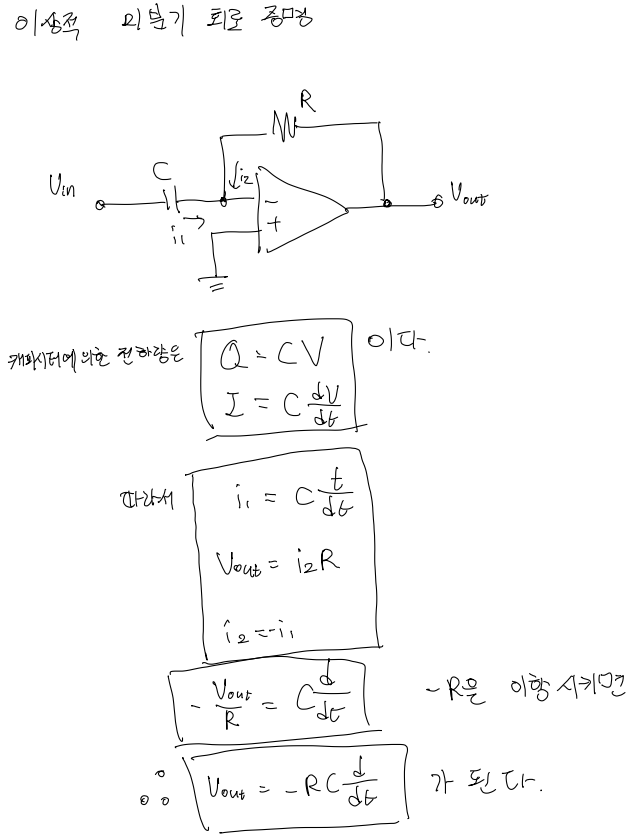 이상적 미분기 회로 증명
R
C
i₂
Vin
−
Vout
i₁
+
캐패시터에 의한 전하량은 Q = CV 이다.
I = C dV/dt
따라서 i₁ = C t/dt
Vout = i₂R
i₂ = -i₁
- Vout/R = C d/dt -R을 이항 시키면
∴ Vout = -RC d/dt 가 된다.